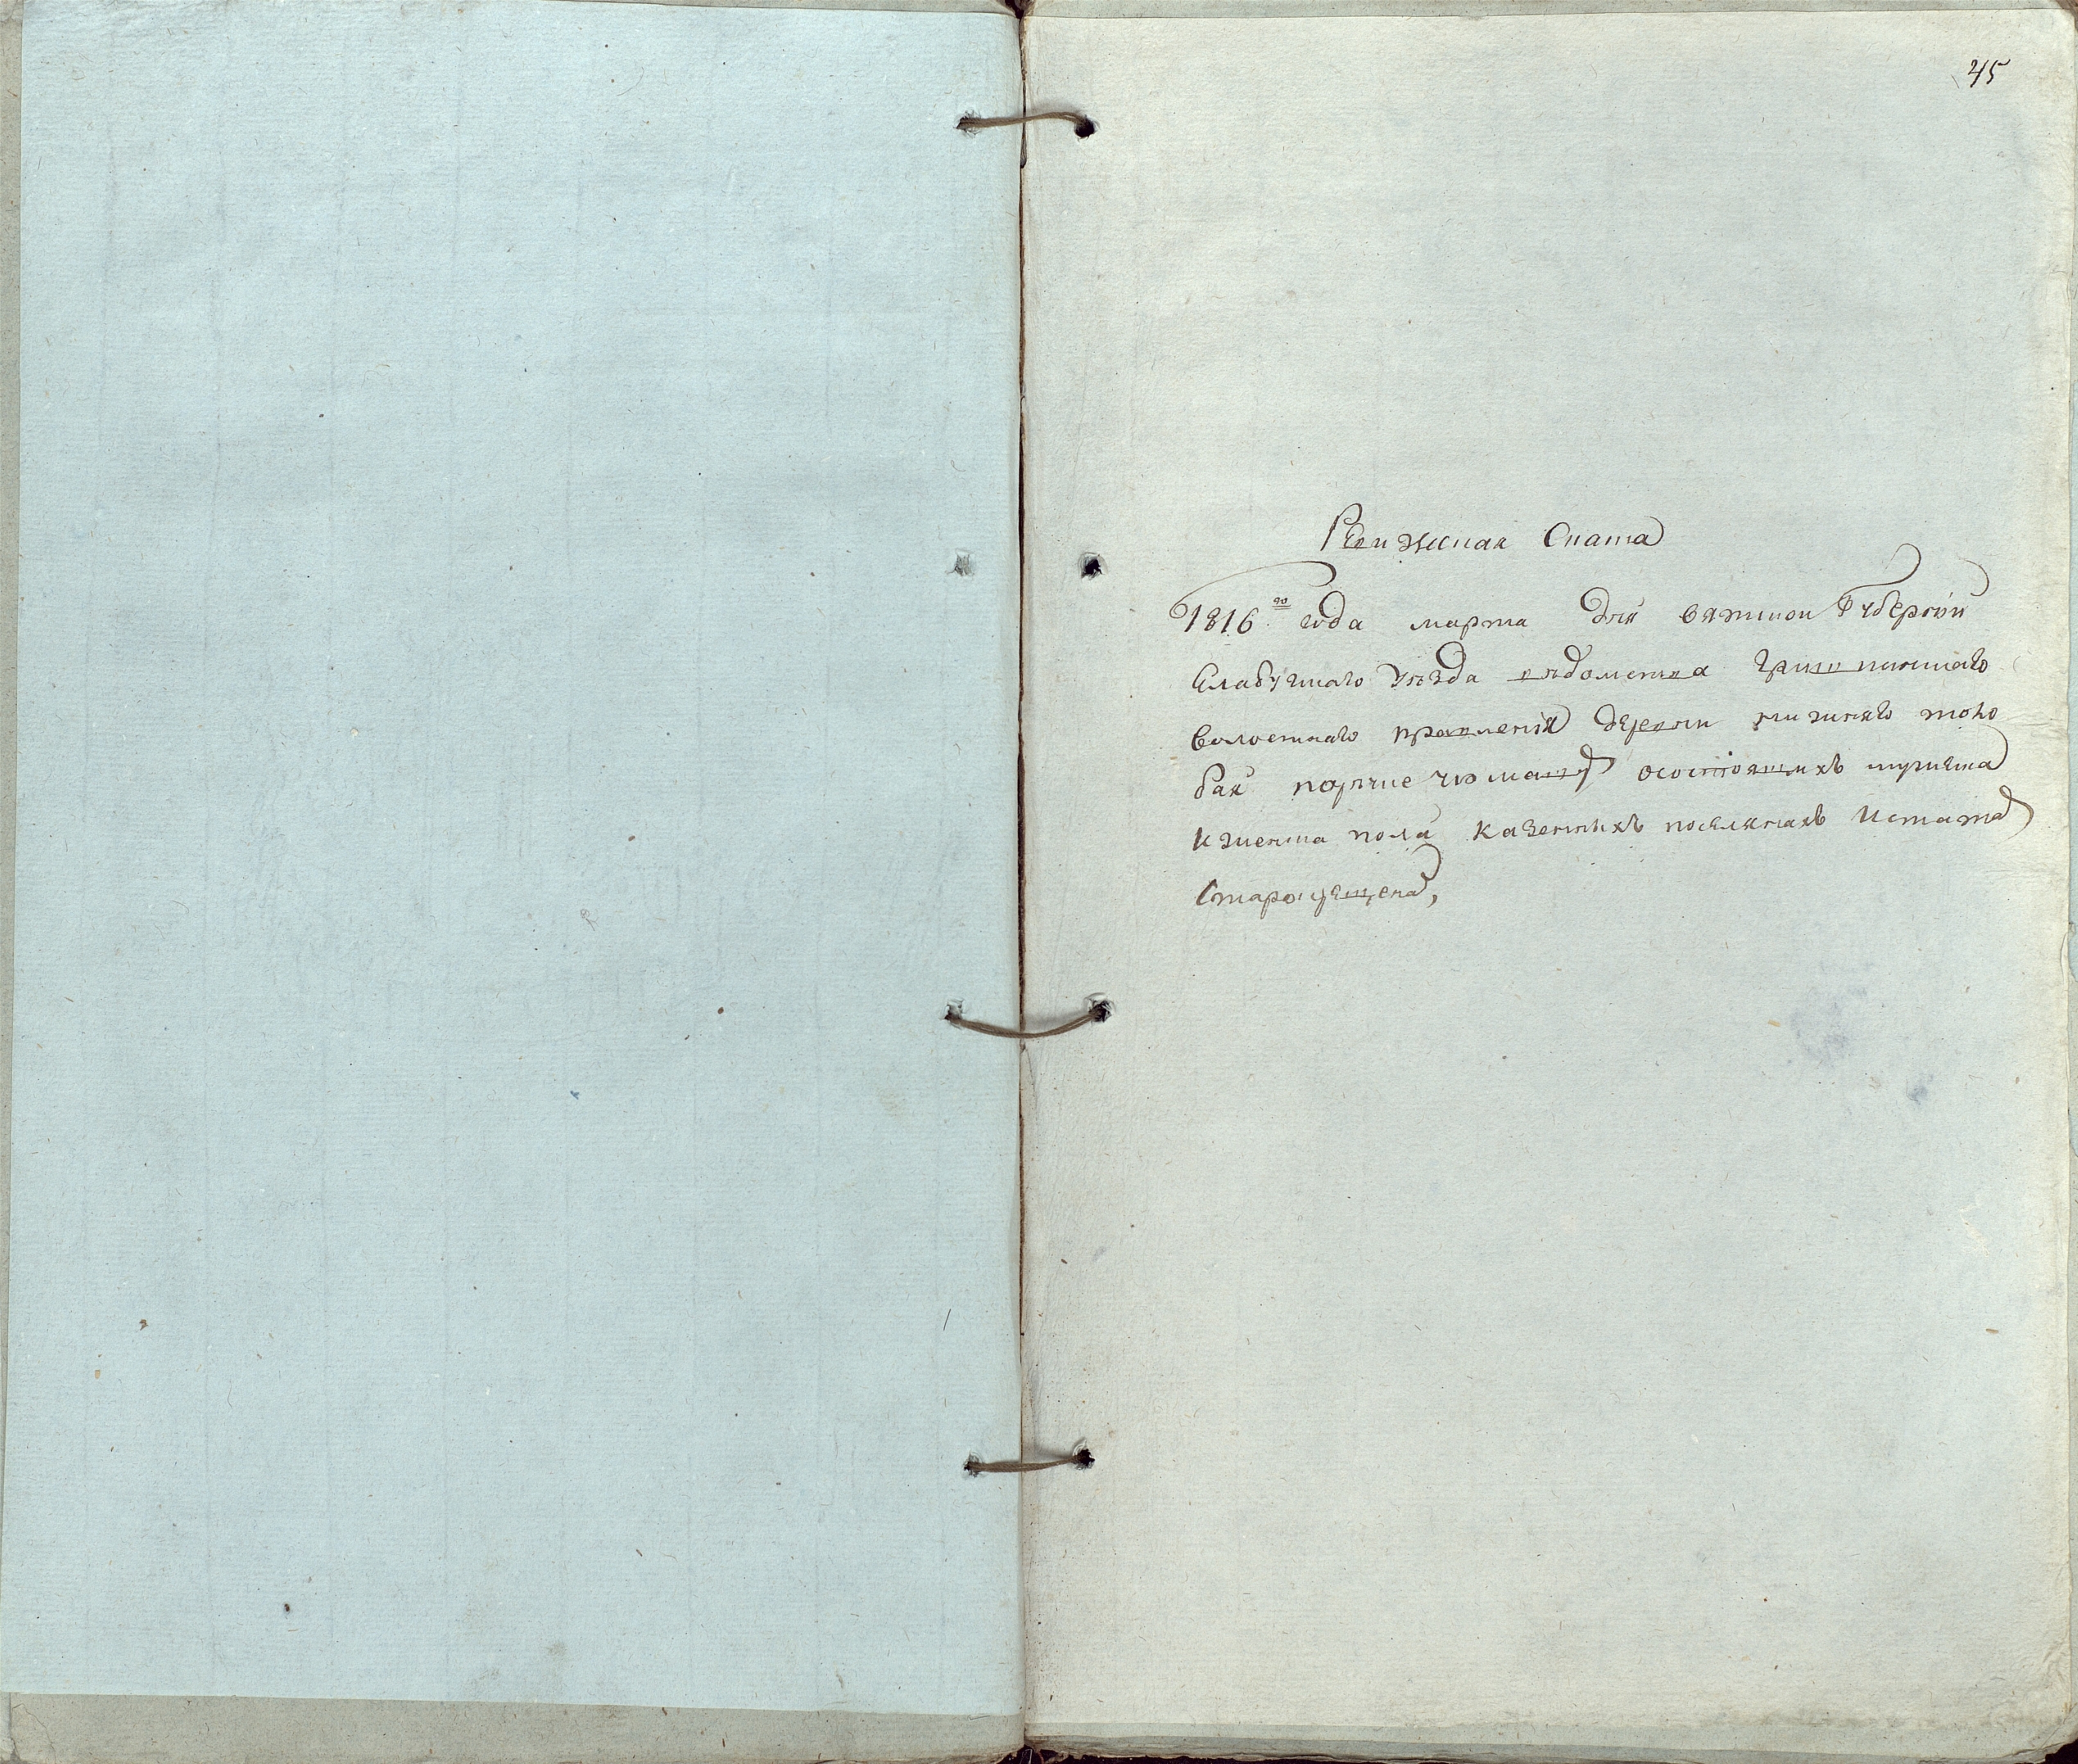 45
Ревижская Скаска
1816го года марта дня вяцкой Губернiи
Елабужскаго уезда ведомства граховскаго
волостнаго правленiя деревни нижняго
бая осостоящихъ мужеска
и женска пола казенныхъ поселянахъ Истатар
Старокрещена,